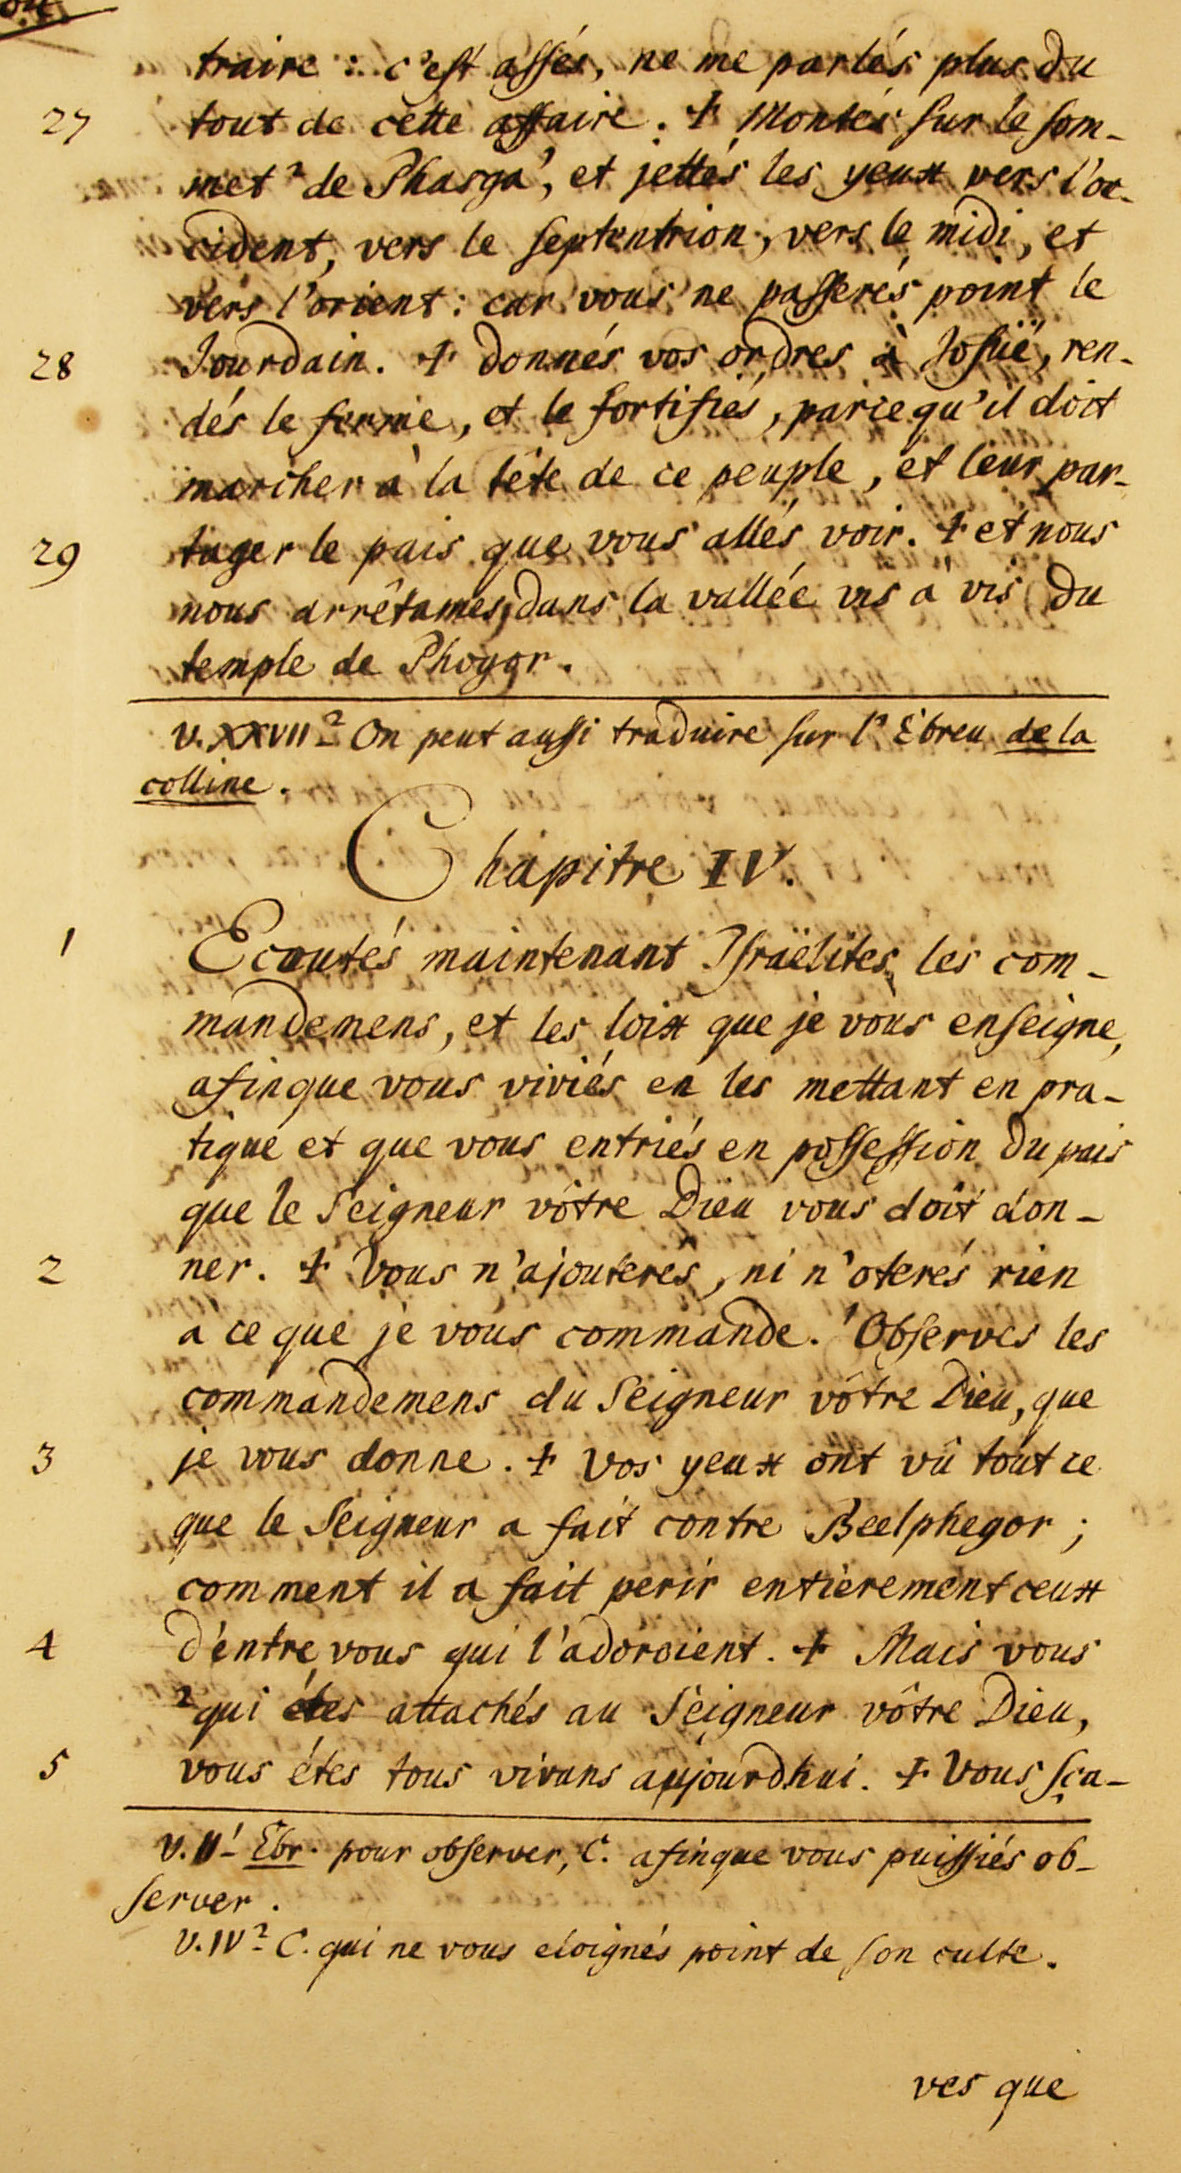 traire : c'est assés, ne me parlés plus du
27 tout de cette affaire. + Montés sur le som-
met 2 de Phasga, et jettés les yeux vers l'oc-
cident, vers le septentrion, vers le midi, et
vers l'orient : car vous ne passerés point le
28 Jourdain. + donnés vos ordres à Josüé, ren-
dés le ferme, et le fortifiés, parce qu'il doit
marcher à la tête de ce peuple, et leur par-
29 tager le pais que vous allés voir. + et nous
nous arrêtames dans la vallée vis à vis du
temple de Phogor.
V. XXVII 2 On peut aussi traduire sur l'Ebreu de la
colline.
Chapitre IV.
1 Ecoutés maintenant Israëlites les com-
mandemens, et les loix que je vous enseigne,
afinque vous viviés en les mettant en pra-
tique et que vous entriés en possession du pais
que le Seigneur vôtre Dieu vous doit don-
2 ner. + Vous n'ajouterés, ni n'oterés rien
a ce que je vous commande. 1 Observés les
commandemens du Seigneur vôtre Dieu, que
3 je vous donne. + Vos yeux ont vû tout ce
que le Seigneur a fait contre Beelphegor ;
comment il a fait perir entièrement ceux
4 d'entre vous qui l'adoroient. + Mais vous
2 qui étes attachés au Seigneur vôtre Dieu,
5 vous étes tous vivans aujourdhui. + Vous sça-
V. II 1 Ebr. pour observer, C. afinque vous puissiés ob-
server.
V. IV 2 C. qui ne vous eloignés point de son culte.
ves que